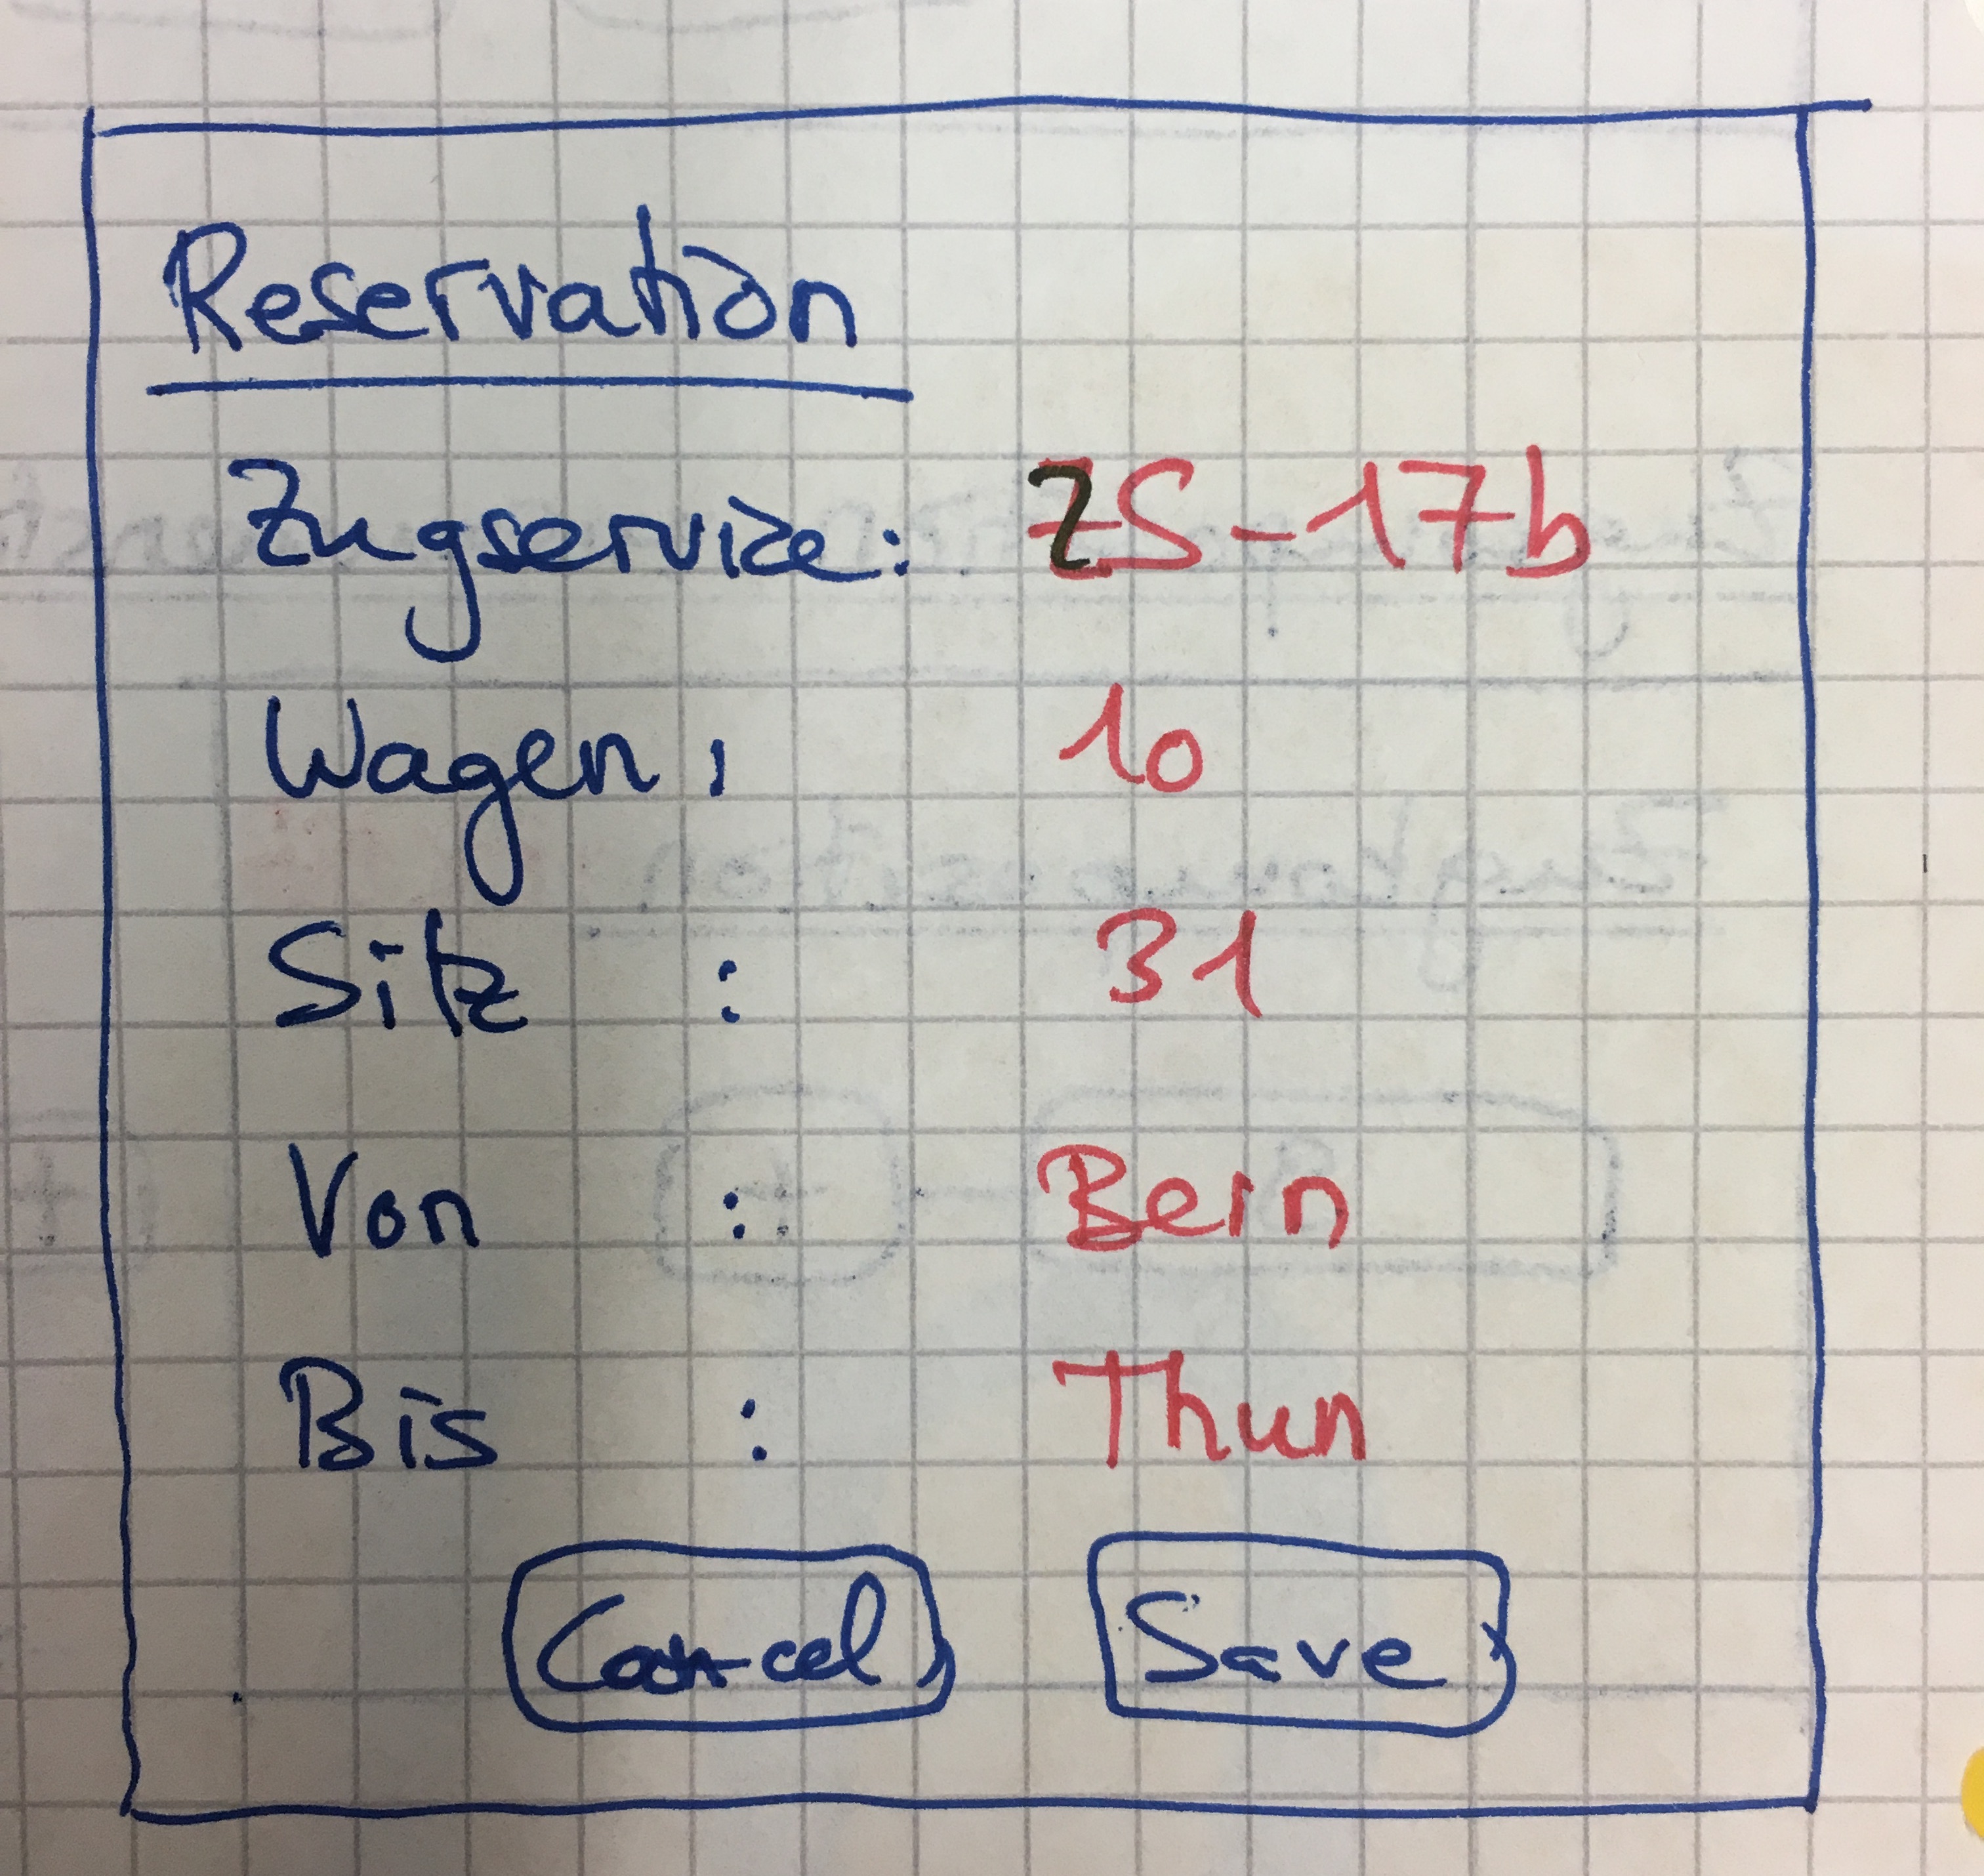 Reservation
Zugservice: ZS-17b
Wagen: 10
Sitz : 31
Von : Bern
Bis : Thun
Cancel Save